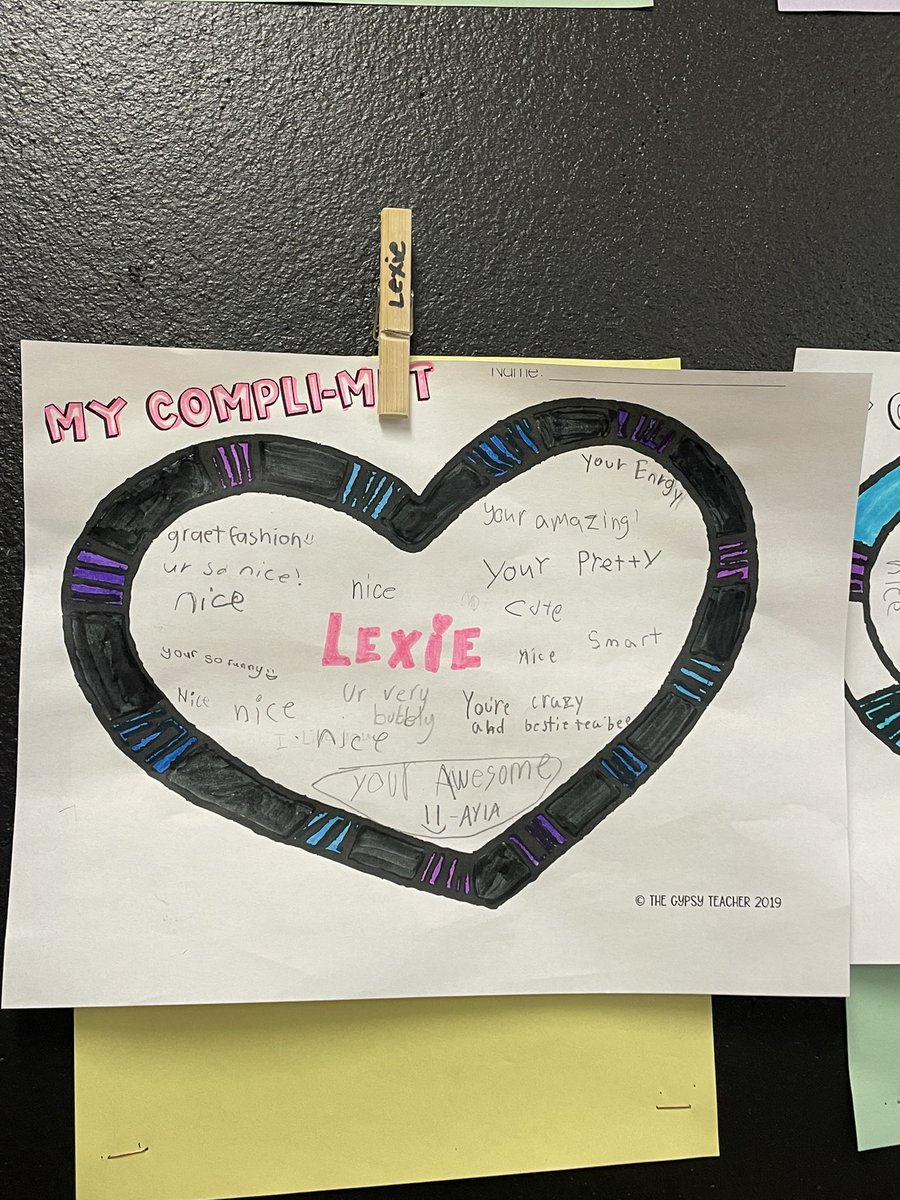 Lexie
MY COMPLI-M T
Name:
your Enrgy
your amazing!
graet fashion
ur so nice!
nice
nice
your Pretty
cute
LEXIE
nice
smart
your so funny
Nice
nice
Ur very
bubbly
You're crazy
and bestie
nice
your Awesome
-AYIA
© THE GYPSY TEACHER 2019
nice